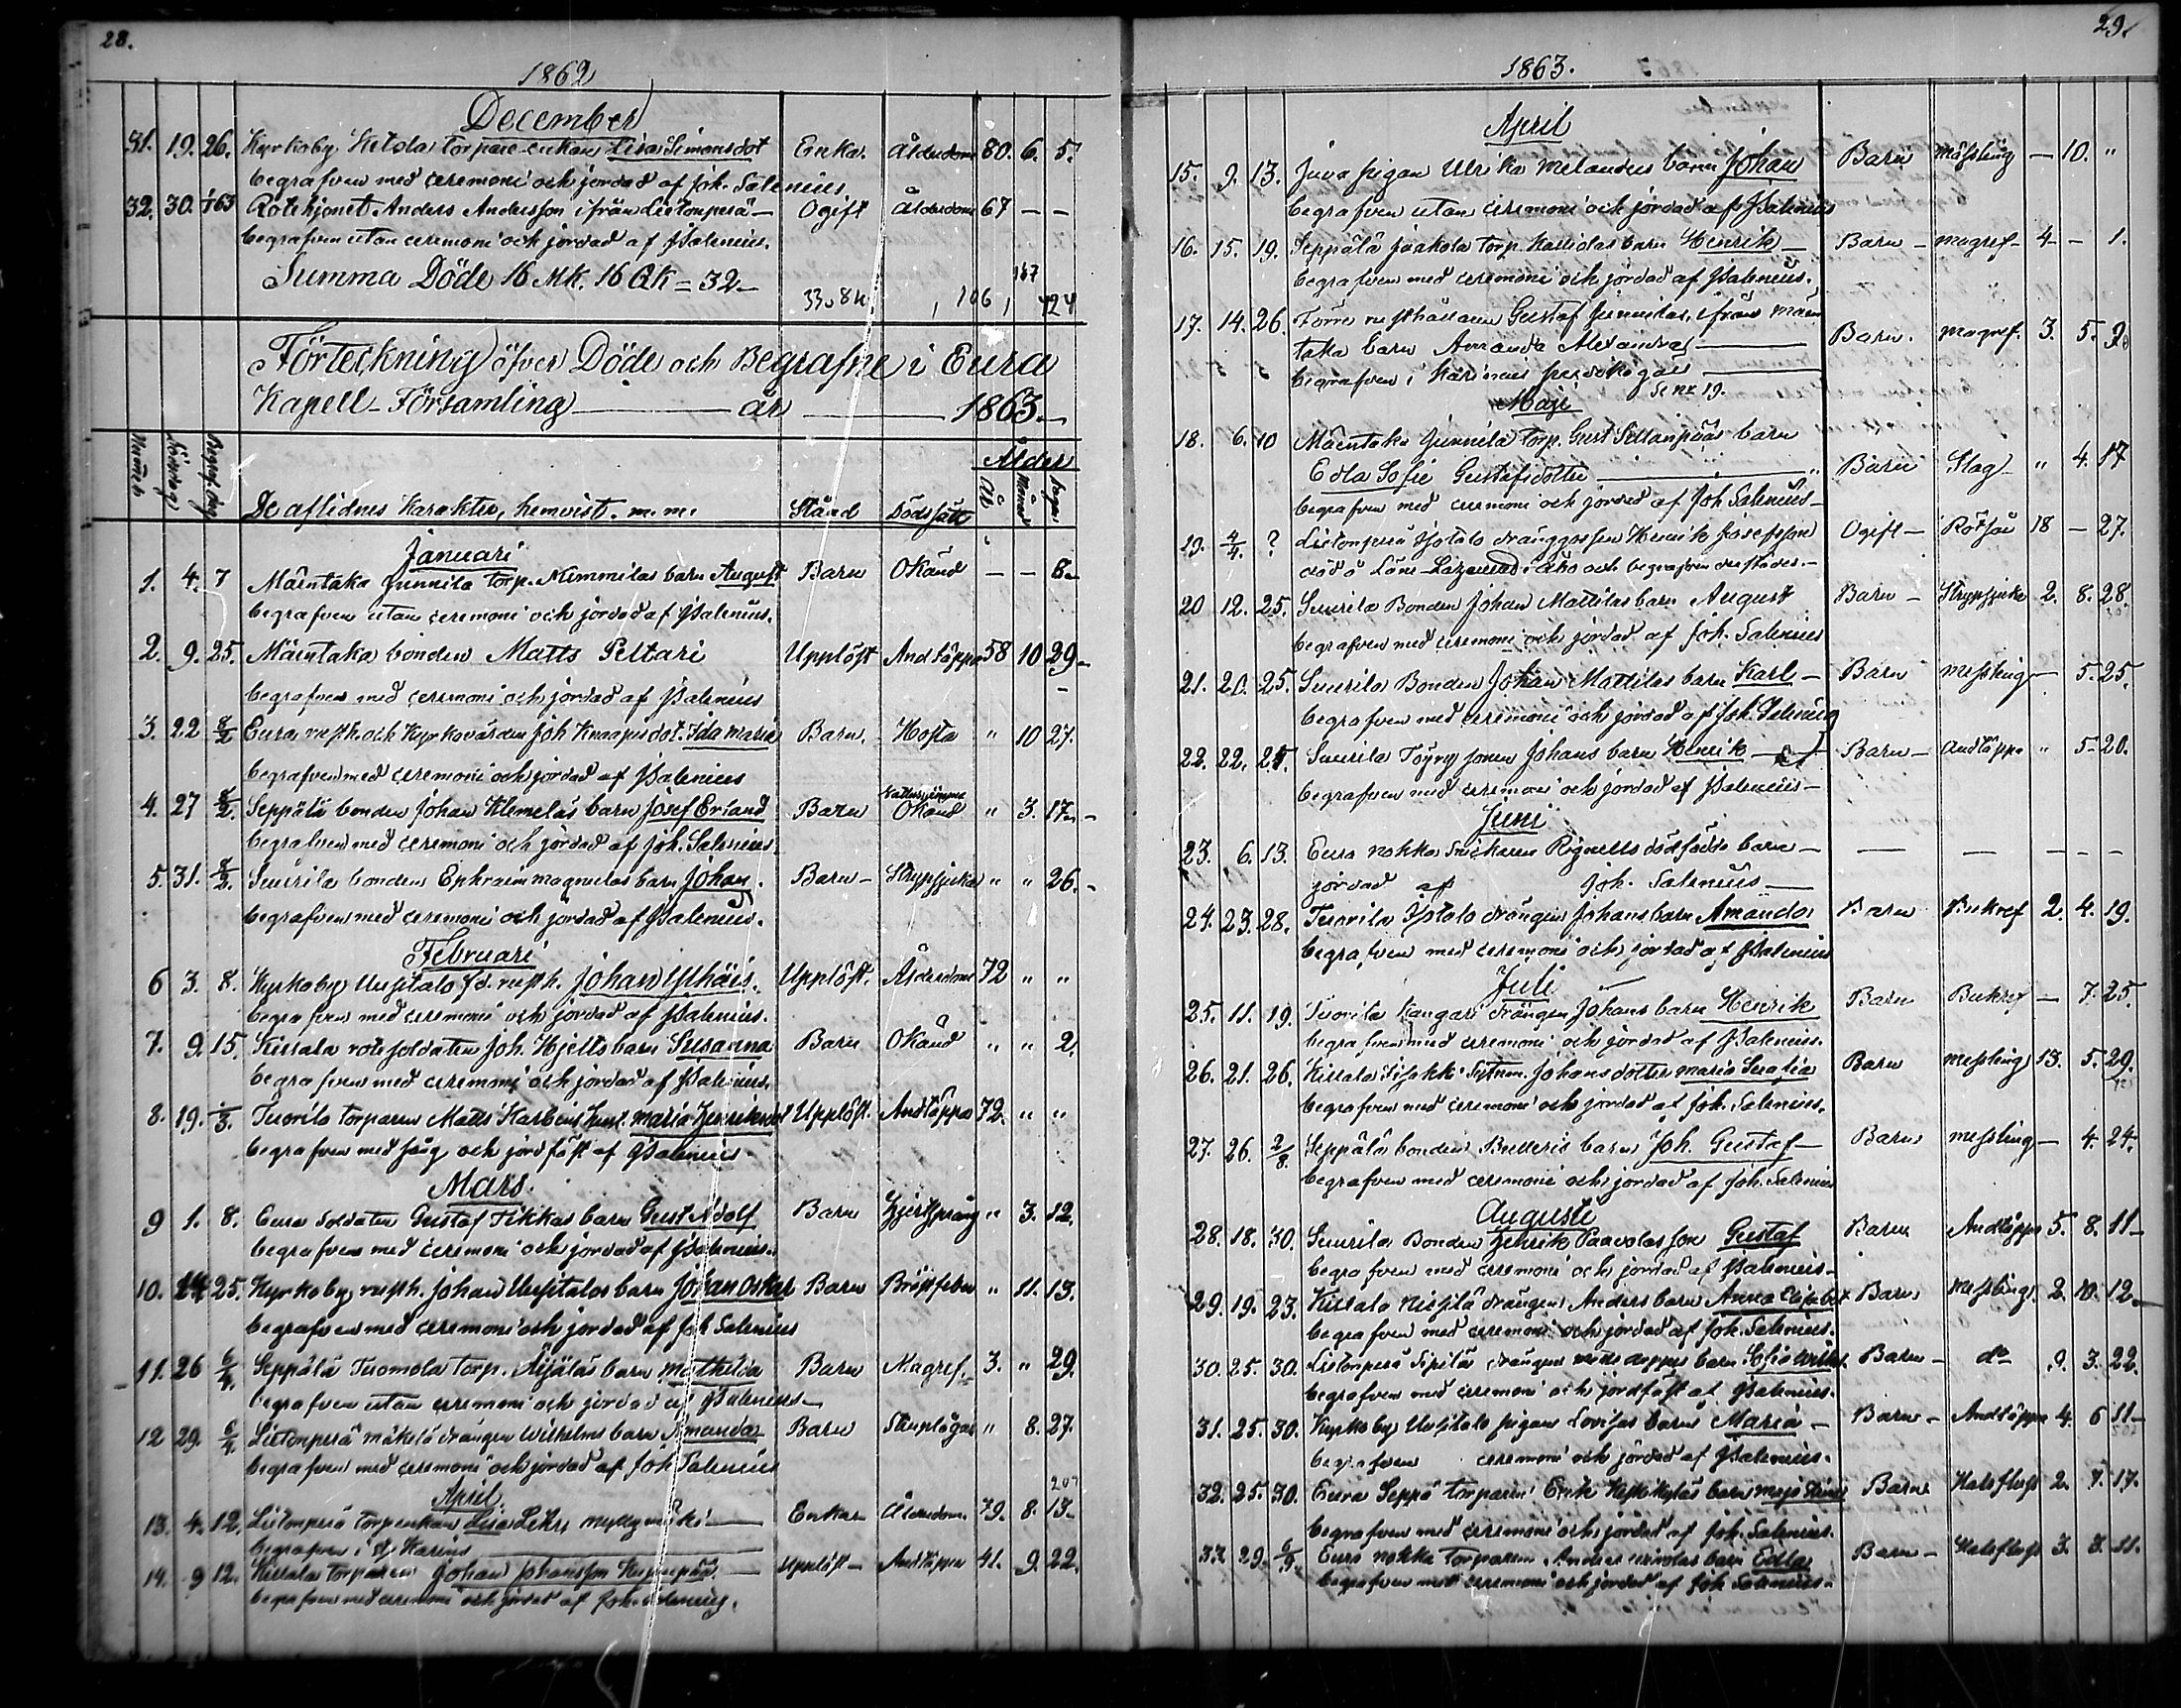 28.
1862
December
31. 19. 26. Kyrkoby torpare enkan Lisa Simonsdot Enka. Ålderdom 80. 6. 5.
begrafven med ceremoni och jordad af Joh. Salenius
32. 30. 1/63 Rotehjonet Anders Andersson ifrån Lietonperä — Ogift Ålderdom 67 — —
begrafven utan ceremoni och jordad af JSalenius.
Summa Döde 16 Mk. 16 QK = 32 —
106 424
Förteckning öfver Döde och Begrafne i Eura
Kapell-Församling — år — 1863. —
Ålder
De aflidnes Karakter, hemvist. m. m. Stånd Dödssätt År Månad Dagar
Januari
1. 4. 7 Mäentaka Junnila torp. Nimmilas barn August Barn Okänd — — 6 —
begrafven utan ceremoni och jordad af JSalenius.
2. 9. 25. Mäentaka bonden Matts Peltari Upplöst Andtäppa 58 10 29 —
begrafven med ceremoni och jordad af JSalenius
3. 22 8/2 Eura rusth. och Kyrkovärden Joh Knaapis dot. Ida Maria Barn. Hosta " 10 27.
begrafven med ceremoni och jordad af JSalenius
4. 27 8/2. Seppälä bonden Johan Klemelas barn Josef Erland Barn Okänd " 3. 17 —
begrafven med ceremoni och jordad af Joh. Salenius.
5. 31. 8/2. Sorkkis bonden Ephraim Magnulas barn Johan. Barn — Strypsjuka " " 26. —
begrafven med ceremoni och jordad af JSalenius.
Februari
6 3. 8. Kyrkoby Uusitalo fd. rusth. Johan Ylhäis. Upplöst. Ålderdom 72 " "
begrafven med ceremoni och jordad af JSalenius.
7. 9. 15 Kissala rotesoldaten Joh. Hjelts barn Susanna Barn Okänd " " 2.
begrafven med ceremoni och jordad af JSalenius.
8. 19. 1/3. Tuorila torparen Matts hust. Maria Henriksdot Upplöst. Andtäppa 72. " "
begrafven med sång och jordfäst af JSalenius
Mars.
9 1. 8. Eura Soldaten Gustaf Tikkas barn Gust Adolf Barn Hjertsprång " 3. 12.
begrafven med ceremoni och jordad af JSalenius.
10. 14 25. Kyrkoby rusth. Johan Uusitalos barn Johan Oskar Barn Bröstfeber " 11. 13.
begrafven med ceremoni och jordad af Joh Salenius
11. 26 6/4. Seppälä Tuomola torp. Äijäläs barn Mathilda Barn Magref. 3. " 29.
begrafven utan ceremoni och jordad af JSalenius —
12 29. 6/4. Lietonperä Mäkelä drängen Wilhelms barn Amanda Barn " 8. 27.
begrafven med ceremoni och jordad af Joh Salenius
207
April.
13. 4. 12. Lietonperä torpenkan Lisa — Enka — Ålderdom 79. 8. 13 —
begrafven i Karinus —
14. 9 12. Kissala torparen Johan Johansson — Upplöst — Andtäppa 41. 9 22.
begrafven med ceremoni och jordad af Joh. Salenius.
29.
1863.
April
15. 9. 13. Juva pigan Ulrika Melanders barn Johan Barn Mässling — 10. "
begrafven utan ceremoni och jordad af JSalenius
16. 15. 19. Seppälä Jaakola torp. Kalliolas barn Henrik — Barn — magref — 4 — — 1.
begrafven med ceremoni och jordad af JSalenius.
17. 14. 26. Förre rusthållaren Gustaf Junnilas, ifrån Mäen
taka barn Amanda Alexandra — Barn. magref. 3. 5.
begrafven i
Se nr 19.
Maji
18. 6. 10 Mäentaka Junnila torp. Gust barn
Edla Sofie Gustafsdotter — Barn Slag — " 4. 17
begrafven med ceremoni och jordad af Joh Salenius —
19. 4/4. ? Lietonperä Isotalo dränggossen Henrik Josefsson Ogift — Rötsår 18 — 27.
död å Läns-Lazarettet i Åbo och begrafven derstädes. —
20 12. 25. Suurila Bonden Johan Mattilas barn August Barn — Strypsjuka 2. 8. 28
begrafven med ceremoni och jordad af Joh. Salenius
21. 20. 25. Suurila Bonden Johan Mattilas barn Karl — Barn messling — 5. 25.
begrafven med ceremoni och jordad af Joh. Salenius
22. 22. 25. Suurila Töyry sonen Johans barn Henrik — Barn — andtäppa " 5. 20.
begrafven med ceremoni och jordad af JSalenius —
Juni
23. 6. 13. Eura Nokka Snickaren Rignells dödfödde barn — — — — — —
jordad af Joh. Salenius —
24. 23. 28. Tuorila Isotalo drängen Johans barn Amanda Barn Bukref 2. 4. 19.
begrafven med ceremoni och jordad af JSalenius
Juli
25. 11. 19. Tuorila Kangari drängen Johans barn Henrik Barn Bukref — 7. 25.
begrafven med ceremoni och jordad af JSalenius.
26. 21. 26. Kissala Johans dotter Maria Serafia Barn messling 13. 5. 29.
begrafven med ceremoni och jordad af Joh. Salenius.
27. 26. 2/8. Seppälä bonden Bulleris barn Joh. Gustaf — Barn messling — 4. 24.
begrafven med ceremoni och jordad af Joh. Salenius
Augusti
28. 18. 30. Suurila Bonden Henrik Paavolas son Gustaf Barn Andtäppa 5. 8. 11 —
begrafven med ceremoni och jordad af JSalenius —
29. 19. 23. Kissala drängen Anders barn Anna Elisabet Barn Messling. 2. 10. 12 —
begrafven med ceremoni och jordad af Joh. Salenius.
30. 25. 30. Lietonperä Sipilä drängen barn Sofia Barn — do — 9. 3. 22.
begrafven med ceremoni och jordfäst af JSalenius.
31. 25. 30. Kyrkoby Uusitalo pigan Lovisas barn Maria — Barn — Andtäppa 4. 6 11 —
begrafven ceremoni och jordad af JSalenius.
32. 25. 30. Eura Seppä torparen Erik barn Maja Stina Barn Halsfluss 2. 7. 17.
begrafven med ceremoni och jordad af Joh. Salenius.
33. 29. 6/9. Eura Nokka torparen Anders barn Edla Barn — Halsfluss 3. 3. 11.
begrafven med ceremoni och jordad af Joh Salenius.